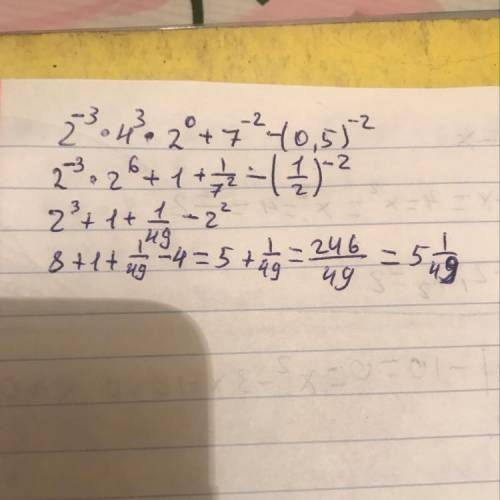 2⁻³ · 4³ · 2⁰ + 7⁻² - (0,5)⁻²
2⁻³ · 2⁶ + 1 + 1/7² - (1/2)⁻²
2³ + 1 + 1/49 - 2²
8 + 1 + 1/49 - 4 = 5 + 1/49 = 246/49 = 5 1/49